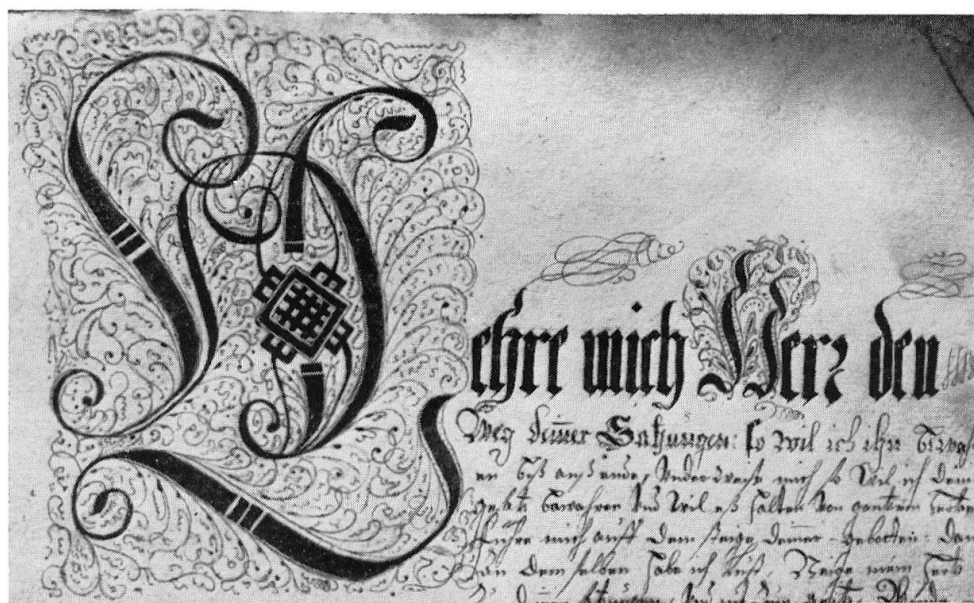 Lehre mich Herr den
Weg deiner Satzungen: so wil ich ihn bewah
en biß ans ende, Underweise mich so wil ich dein
bewahren und wil eß halten von gantzem hertze
Führe mich auff dem steige deiner gebotten: dan
an dem selben habe ich lust. Neige mein hertz